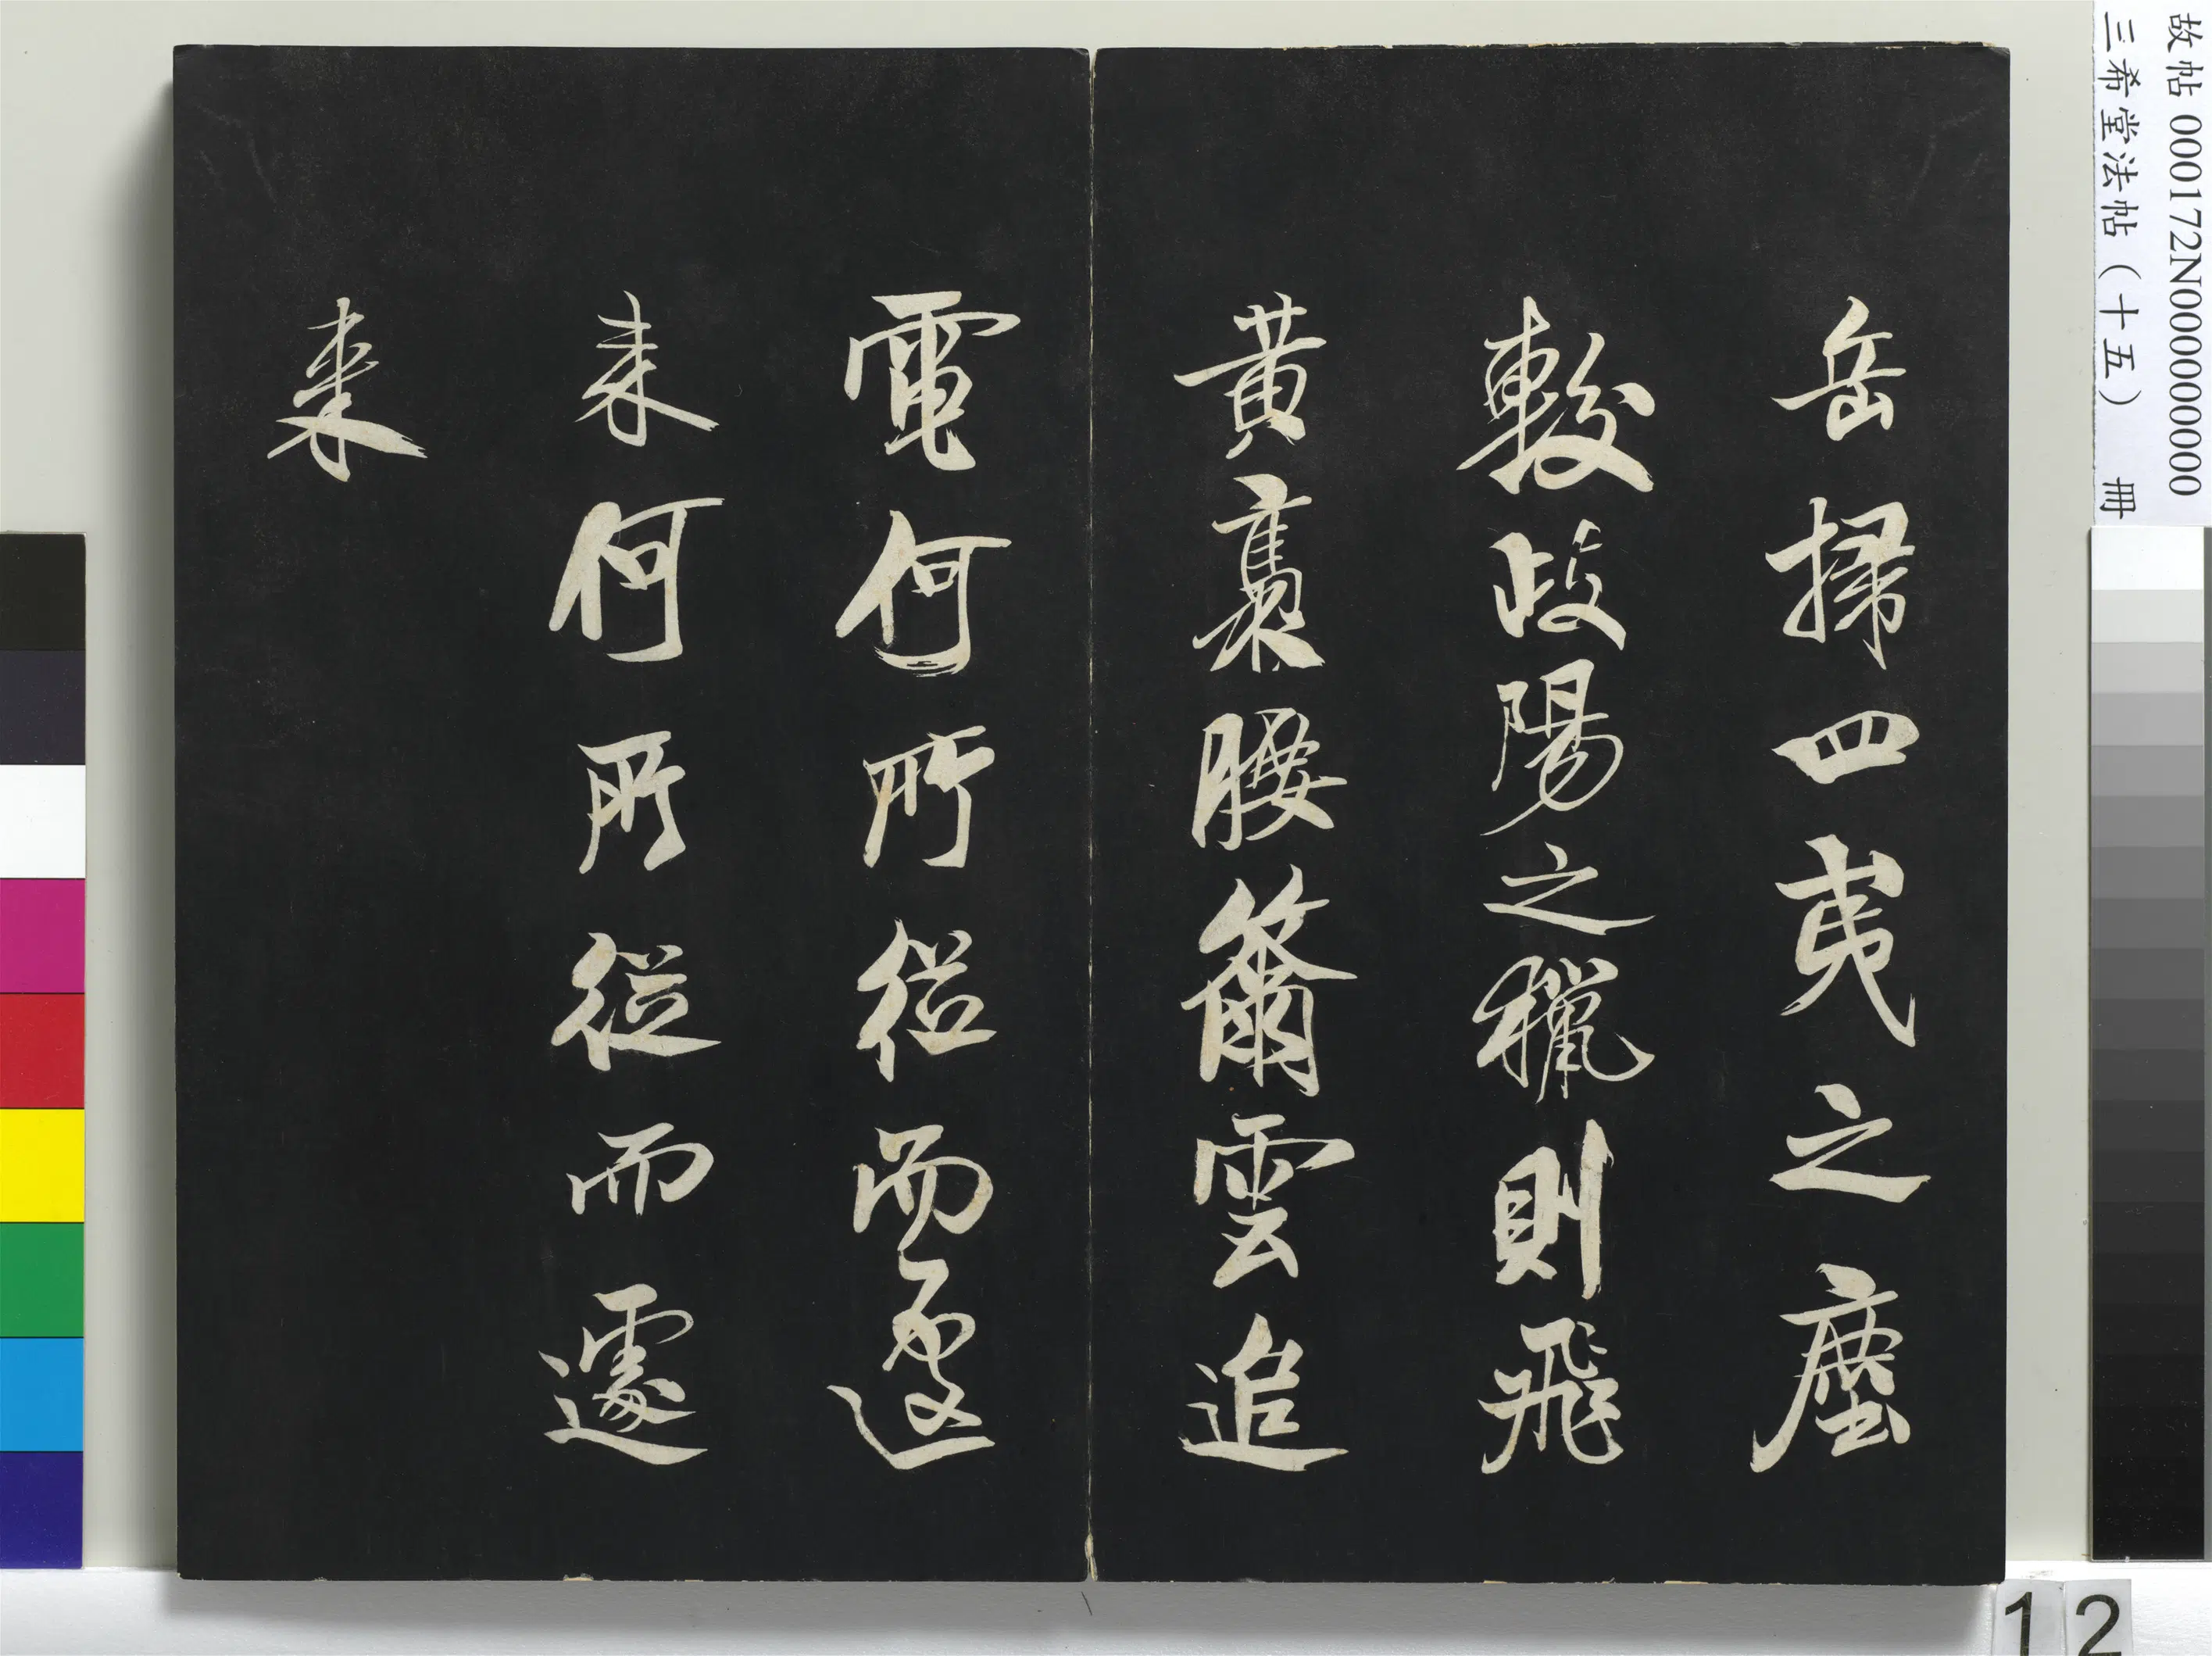 故帖 000172N000000000
三希堂法帖（十五） 冊
岳掃四夷之塵
較歧陽之獵則飛
黃褭腰籋雲追
電何所從而遽
来何所從而遽
来
12